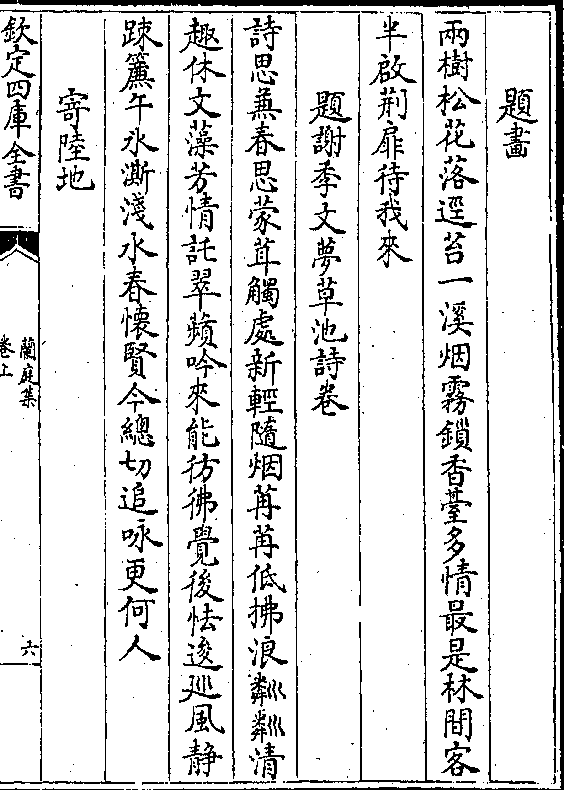 題畫
兩樹松花落逕苔一溪烟霧鎖香臺多情最是林間客
半啟荆扉待我來
題謝季文夢草池詩卷
詩思蕪春思蒙茸觸處新輕隨烟苒苒低拂浪粼粼清
趣休文藻芳情託翠蘋吟來能彷彿覺後怯逡廵風静
踈簾午氷澌淺水春懐賢今總切追咏更何人
寄陸地
欽定四庫全書
蘭庭集
卷上
六